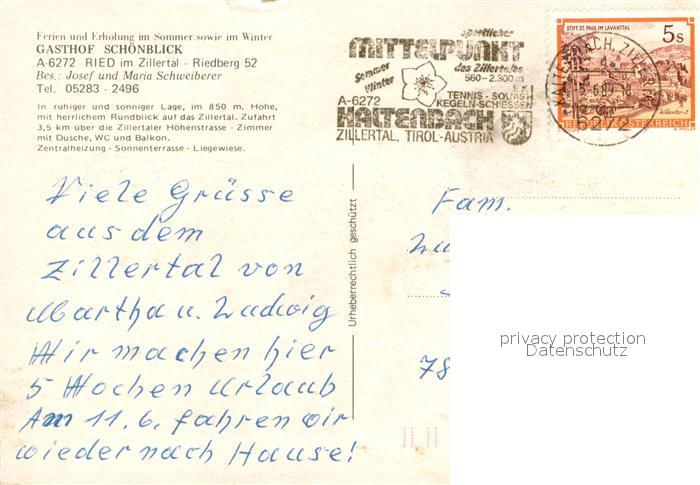 Ferien und Erholung im Sommer sowie im Winter
GASTHOF SCHÖNBLICK
A-6272 RIED im Zillertal - Riedberg 52
Bes.: Josef und Maria Schweiberer
Tel. 05283 - 2496
In ruhiger und sonniger Lage, im 850 m. Höhe,
mit herrlichem Rundblick auf das Zillertal. Zufahrt
3,5 km über die Zillertaler Höhenstrasse - Zimmer
mit Dusche, WC und Balkon.
Zentralheizung - Sonnenterrasse - Liegewiese.
sportlicher
MITTELPUNKT
des Zillertales
560-2.300 m
Sommer
Winter
TENNIS - SQUASH
KEGELN-SCHIESSEN
A-6272
KALTENBACH
ZILLERTAL, TIROL-AUSTRIA
KALTENBACH, ZILLERTAL
5.6.89-18
6272
STIFT ST. PAUL IM LAVANTTAL
5s
REPUBLIK ÖSTERREICH
Viele Grüsse
aus dem
Zillertal von
Martha u. Ludwig
Wir machen hier
5 Wochen Urlaub
Am 11.6. fahren wir
wieder nach Hause!
Urheberrechtlich geschützt
Fam.
78
privacy protection
Datenschutz